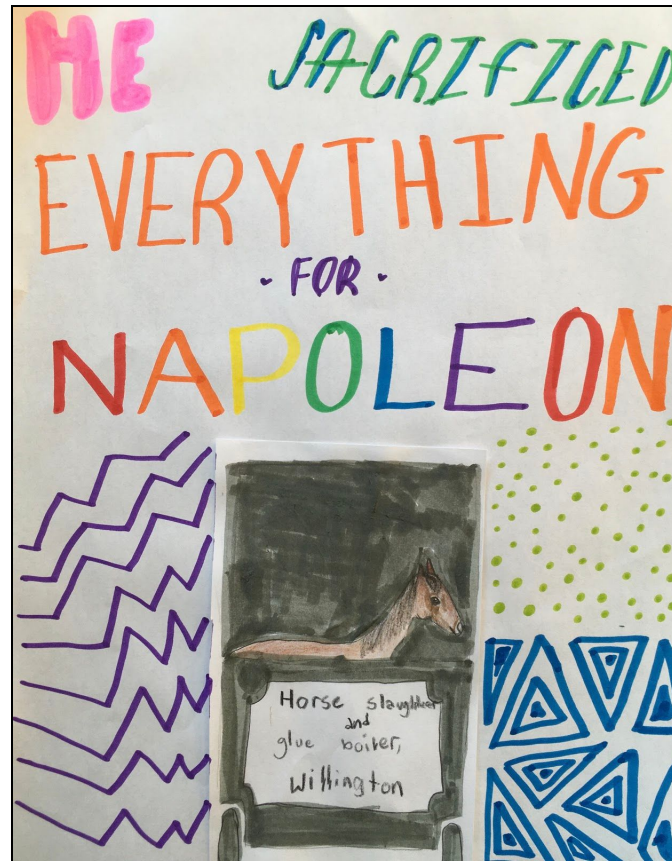 HE SACRIFICED
EVERYTHING
· FOR ·
NAPOLEON
Horse slaughter
and
glue boiler,
Willington